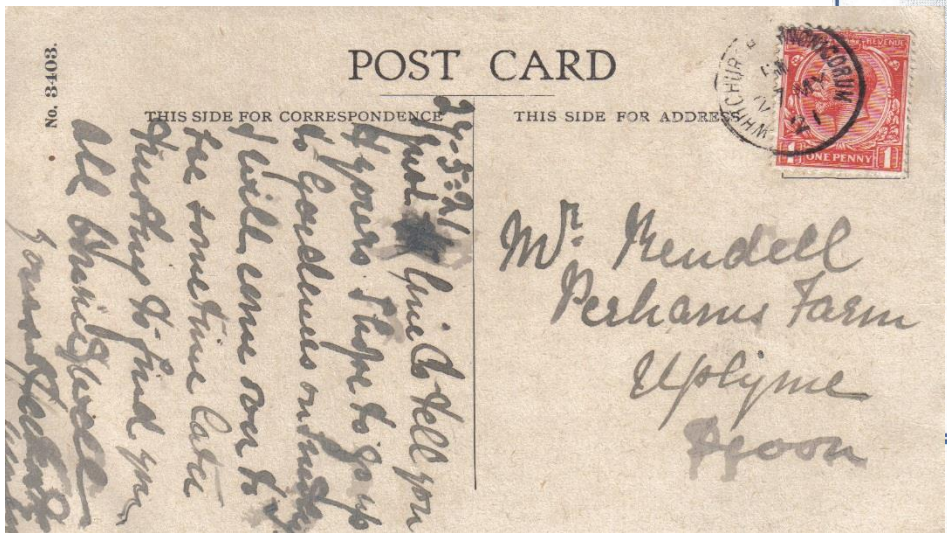 No. 3403.
POST CARD
THIS SIDE FOR CORRESPONDENCE
THIS SIDE FOR ADDRESS
WHITCHURCH CANONICORUM
REVENUE
1 ONE PENNY 1
29-5-21
Just line to tell you
of yours I hope to go up
to on
I will come over to
see sometime later
trusting to find you
all being well
yours
Mr. Rendell
Perhams Farm
Uplyme
Devon